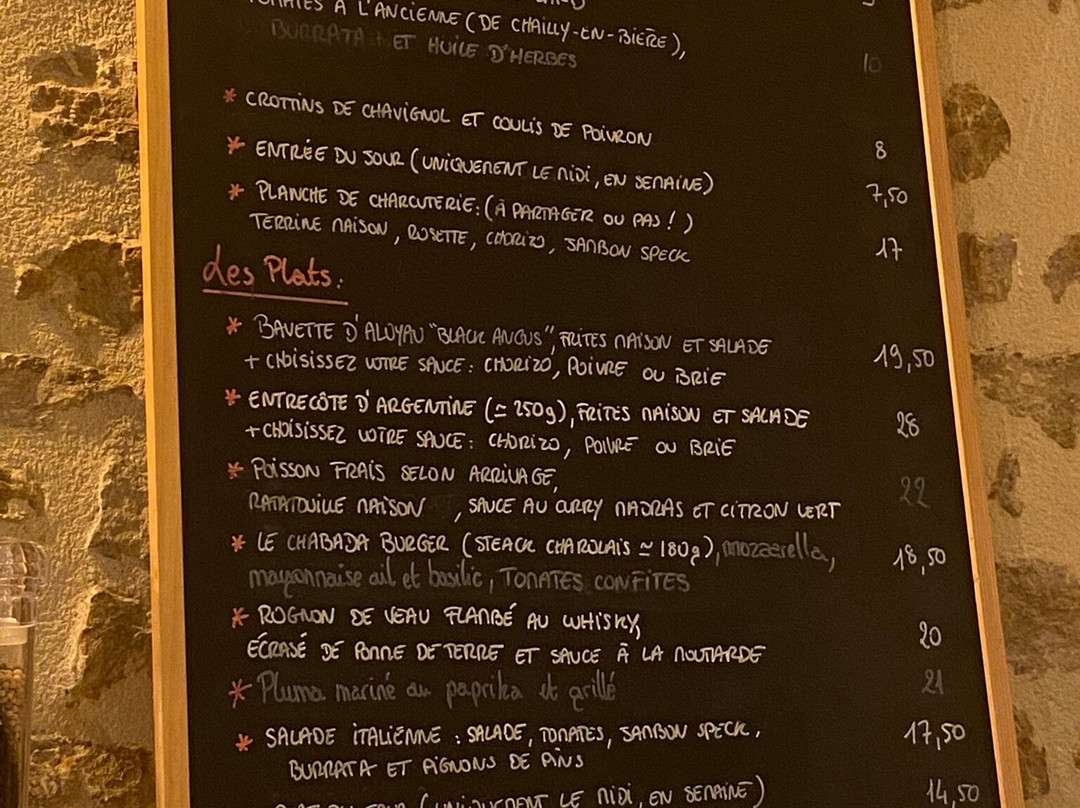 TOMATES A L'ANCIENNE (DE CHAILLY-EN-BIÈRE),
BURRATA ET HUILE D'HERBES 10
* CROTTINS DE CHAVIGNOL ET COULIS DE POIVRON 8
* ENTRÉE DU JOUR (UNIQUEMENT LE MIDI, EN SEMAINE) 7,50
* PLANCHE DE CHARCUTERIE: (À PARTAGER OU PAS!) 17
TERRINE MAISON, ROSETTE, CHORIZO, JAMBON SPECK
Les Plats:
* BAVETTE D'ALOYAU "BLACK ANGUS", FRITES MAISON ET SALADE 19,50
+ CHOISISSEZ VOTRE SAUCE: CHORIZO, POIVRE OU BRIE
* ENTRECÔTE D'ARGENTINE (≃ 250g), FRITES MAISON ET SALADE 28
+ CHOISISSEZ VOTRE SAUCE: CHORIZO, POIVRE OU BRIE
* POISSON FRAIS SELON ARRIVAGE, 22
RATATOUILLE MAISON , SAUCE AU CURRY MADRAS ET CITRON VERT
* LE CHABADA BURGER (STEACK CHAROLAIS ≃ 180g), mozzarella, 18,50
mayonnaise ail et basilic, TOMATES CONFITES
* ROGNON DE VEAU FLAMBÉ AU WHISKY, 20
ÉCRASÉ DE POMME DE TERRE ET SAUCE À LA MOUTARDE
* Pluma mariné au paprika et grillé 21
* SALADE ITALIENNE : SALADE, TOMATES, JAMBON SPECK, 17,50
BURRATA ET PIGNONS DE PINS
(UNIQUEMENT LE MIDI, EN SEMAINE) 14,50